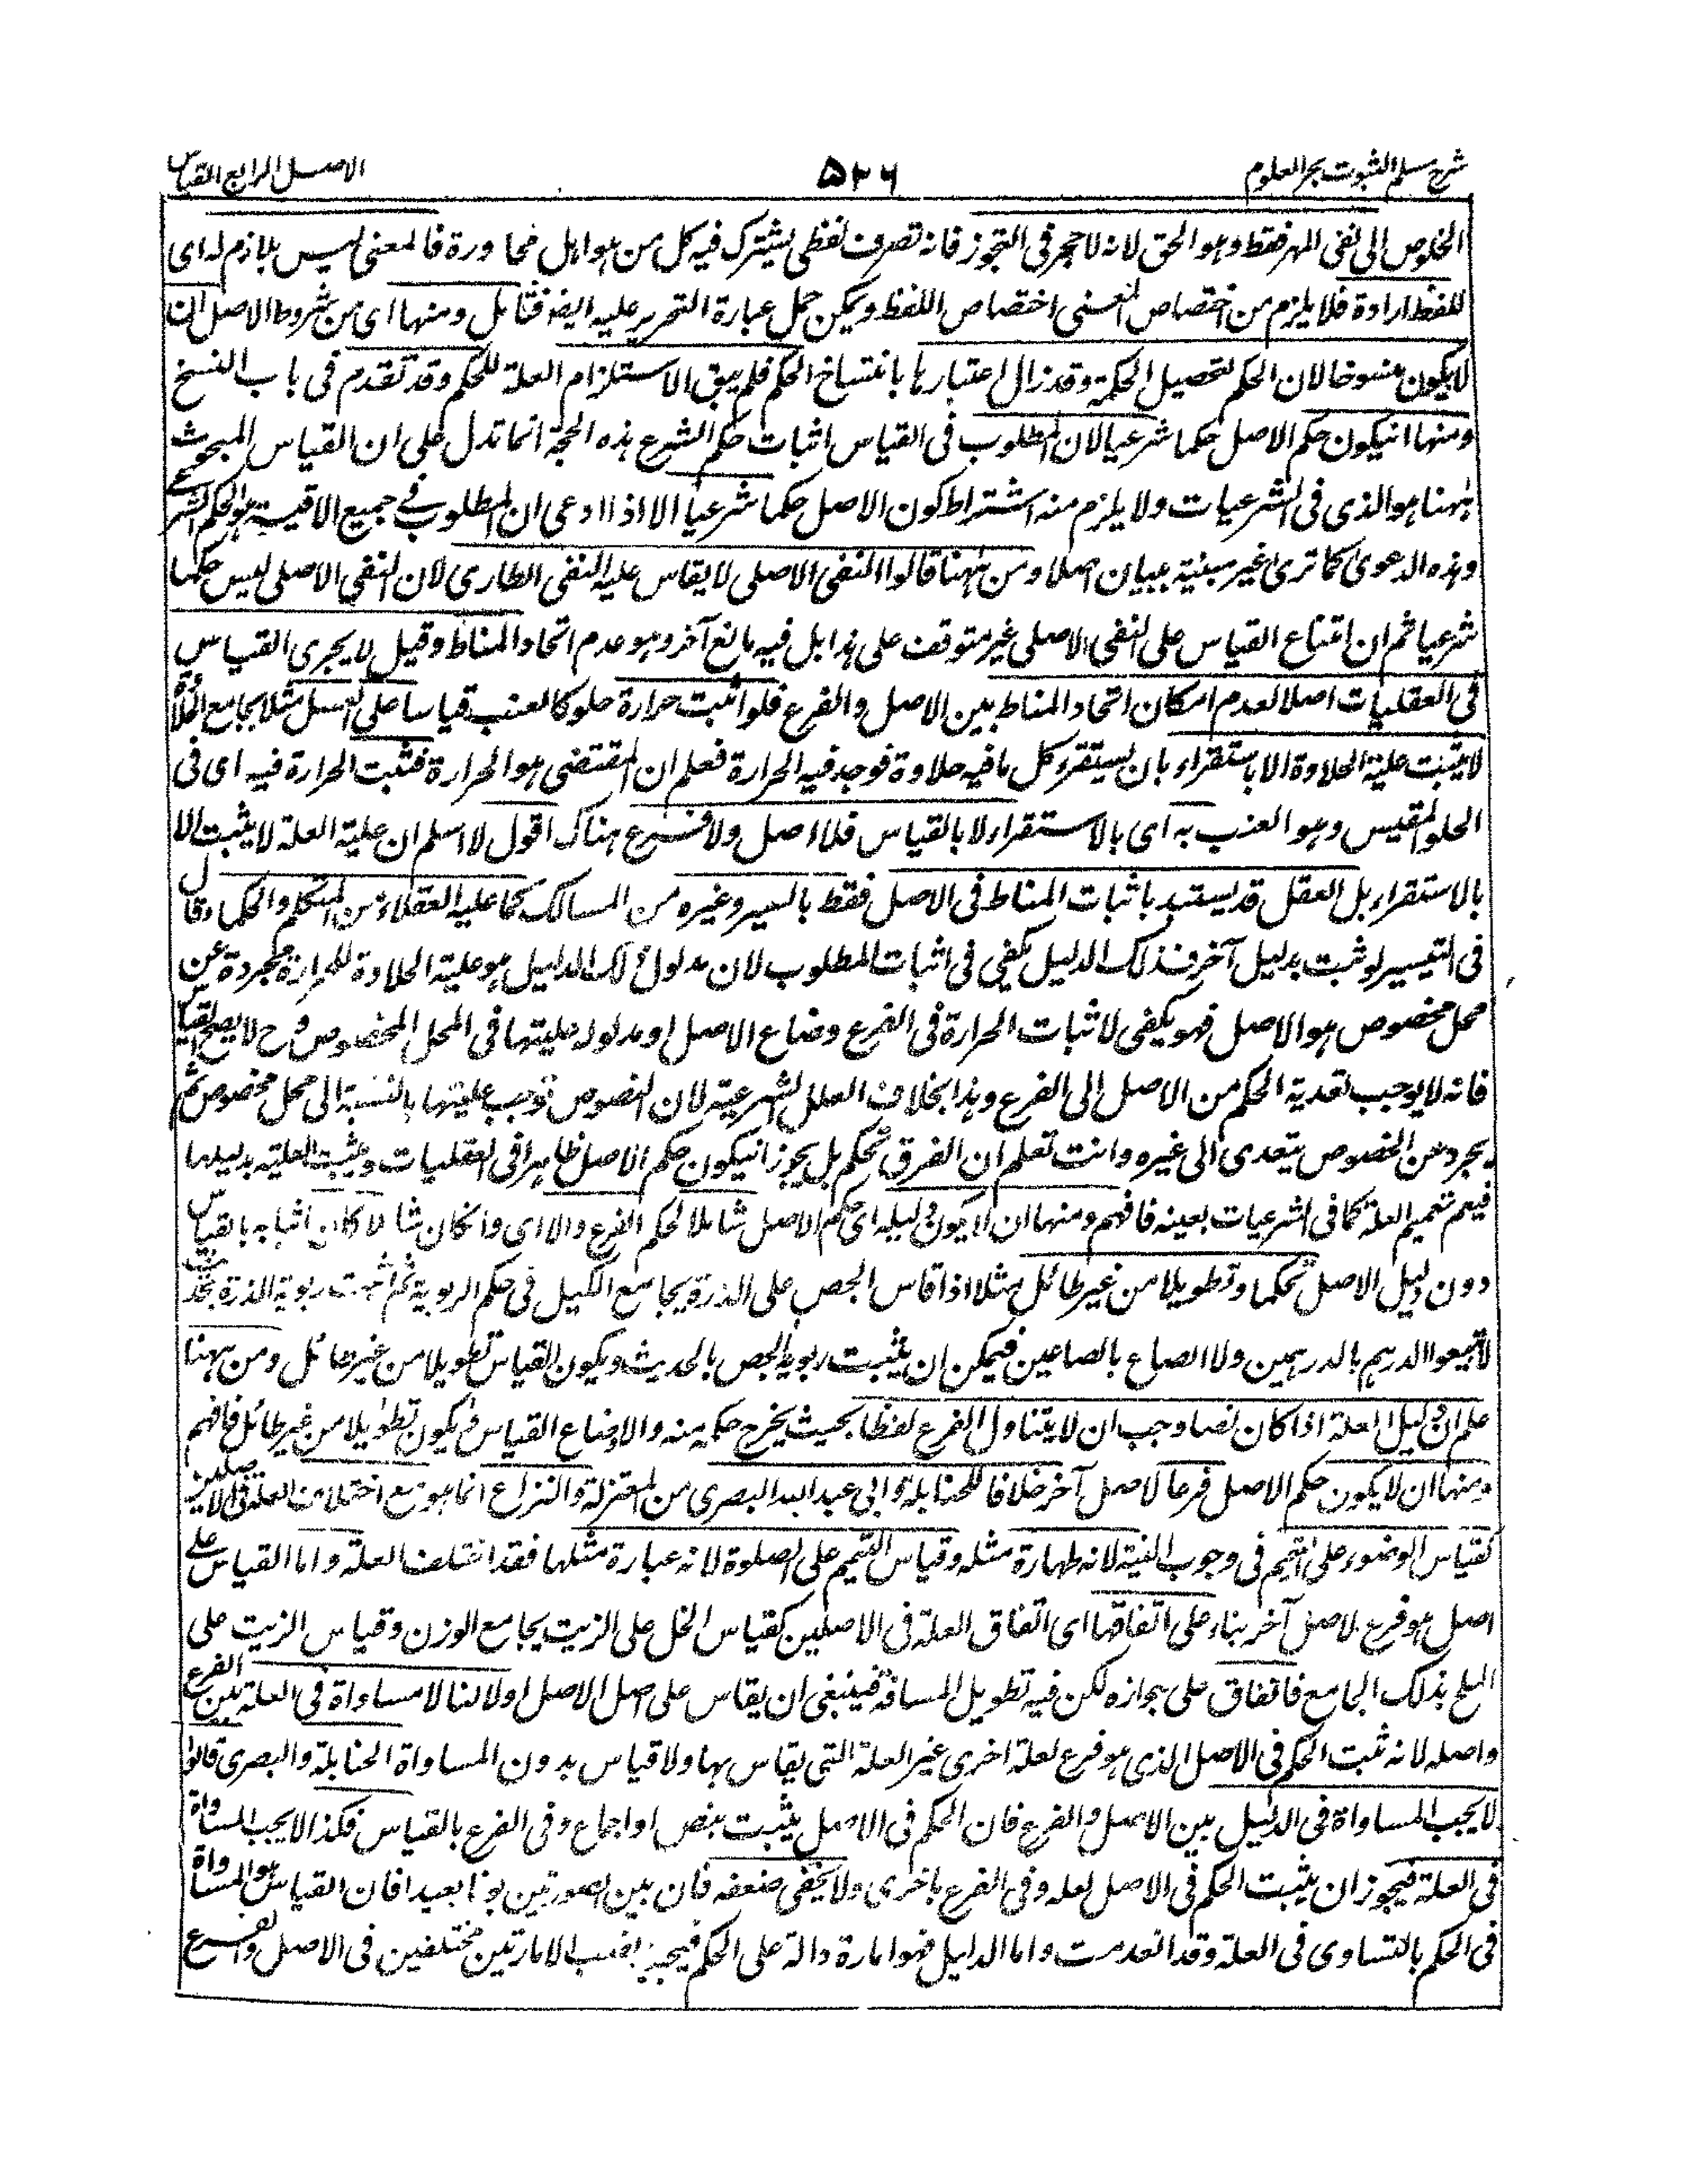 شرح سلم الثبوت بحر العلوم
۵۲۶
الاصل الرابع القياس
الخلوص الى نفى المهر فقط وهو الحق لانه لا حجر فى التجوز فانه تصرف لفظى يشترك فيه كل من هو اهل محاورة فالمعنى ليس بلازم له اى
للفظ ارادة فلا يلزم من اختصاص المعنى اختصاص اللفظ ويمكن حمل عبارة التحرير عليه ايضا فتأمل ومنها اى من شروط الاصل ان
لا يكون منسوخا لان الحكم لتحصيل الحكمة وقد زال اعتبارها بانتساخ الحكم فلم يبق الاستلزام العلة للحكم وقد تقدم فى باب النسخ
ومنها انيكون حكم الاصل حكما شرعيا لان المطلوب فى القياس اثبات حكم الشرع هذه الحجة انما تدل على ان القياس المبحوث
ههنا هو الذى فى الشرعيات ولا يلزم منه اشتراط كون الاصل حكما شرعيا الا اذا ادعى ان المطلوب فى جميع الاقيسة هو الحكم الشرعى
وهذه الدعوى كما ترى غير مبنية ببيان اصلا ومن ههنا قالوا النفى الاصلى لا يقاس عليه النفى الطارى لان النفى الاصلى ليس حكما
شرعيا ثم ان امتناع القياس على النفى الاصلى غير متوقف على هذا بل فيه مانع آخر وهو عدم اتحاد المناط وقيل لا يجرى القياس
فى العقليات اصلا لعدم امكان اتحاد المناط بين الاصل والفرع فلو اثبت حرارة حلو كالعنب قياسا على العسل مثلا بجامع الحلاوة
لا يثبت علية الحلاوة الا باستقراء بان يستقرء كل ما فيه حلاوة فوجد فيه الحرارة فعلم ان المقتضى هو الحرارة فتثبت الحرارة فيه اى فى
الحلو المقيس وهو العنب به اى بالاستقراء لا بالقياس فلا اصل ولا فرع هناك اقول لا اسلم ان علية العلة لا يثبت الا
بالاستقراء بل العقل قد يستبد باثبات المناط فى الاصل فقط بالسير وغيره من المسالك كما عليه العقلاء من المتكلم والحكماء وقال
فى التيسير لو ثبت بدليل آخر فذلك الدليل يكفى فى اثبات المطلوب لان مدلول ذلك الدليل هو علية الحلاوة للحرارة مجردة عن
محل مخصوص هو الاصل فهو يكفى لاثبات الحرارة فى الفرع وضاع الاصل او مدلوله عليتها فى المحل المخصوص و ح لا يصح القياس
فانه لا يوجب تعدية الحكم من الاصل الى الفرع وهذا بخلاف العلل الشرعية لان النصوص توجب عليتها بالنسبة الى محل مخصوص ثم
يجرد عن الخصوص يتعدى الى غيره وانت تعلم ان الفرق تحكم بل يجوز انيكون حكم الاصل ظاهرا فى العقليات ويثبت العلية بدليلها
فيعم تعميم العلة كما فى الشرعيات بعينه فافهم ومنها ان لا يكون دليله اى حكم الاصل شاملا لحكم الفرع والا اى وانكان شاملا كان اثباته بالقياس
دون دليل الاصل تحكما وتطويلا من غير طائل مثلا اذا قاس الجص على الذرة بجامع الكيل فى حكم الربوية ثم اثبت ربوية الذرة بحديث
لا تبيعوا الدرهم بالدرهمين ولا الصاع بالصاعين فيمكن ان يثبت ربوية الجص بالحديث ويكون القياس تطويلا من غير طائل ومن ههنا
علم ان دليل العلة اذا كان نصا وجب ان لا يتناول الفرع لفظا بحيث يخرج حكمه منه والا ضاع القياس ويكون تطويلا من غير طائل فافهم
ومنها ان لا يكون حكم الاصل فرعا لاصل آخر خلافا للحنابلة وابى عبد الله البصرى من المعتزلة والنزاع انما هو مع اختلاف العلة فى الاصلين
كقياس الوضوء على التيمم فى وجوب النية لانه طهارة مثله وقياس التيمم على الصلوة لانه عبارة مثلها فقد اختلف العلة واما القياس على
اصل هو فرع لاصل آخر بناء على اتفاقها اى اتفاق العلة فى الاصلين كقياس الخل على الزيت بجامع الوزن وقياس الزيت على
الملح بذلك الجامع فاتفاق على بجوازه لكن فيه تطويل المسافة فينبغى ان يقاس على اصل الاصل اولا لنا لا مساواة فى العلة بين الفرع
واصله لانه ثبت الحكم فى الاصل الذى هو فرع لعلة اخرى غير العلة التى يقاس بها ولا قياس بدون المساواة الحنابلة والبصرى قالوا
لا يجب المساواة فى الدليل بين الاصل والفرع فان الحكم فى الاصل يثبت بنص او اجماع وفى الفرع بالقياس فكذا لا يجب المساواة
فى العلة فيجوز ان يثبت الحكم فى الاصل لعله وفى الفرع باخرى ولا يخفى ضعفه فان بين الصورتين بونا بعيدا فان القياس هو المساواة
فى الحكم بالتساوى فى العلة وقد انعدمت واما الدليل فهو امارة دالة على الحكم فيجوز نصب الامارتين مختلفين فى الاصل والفرع